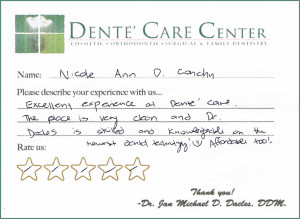 DENTE' CARE CENTER
COSMETIC • ORTHODONTIC • SURGICAL & FAMILY DENTISTRY
Name: Nicole Ann D.
Please describe your experience with us...
Excellent experience at Dente' Care.
The place is very clean and Dr.
Dacles is skilled and knowledgeable on the
newest dental technology! Affordable too!
Rate us:
Thank you!
-Dr. Jan Michael D. Dacles, DDM.